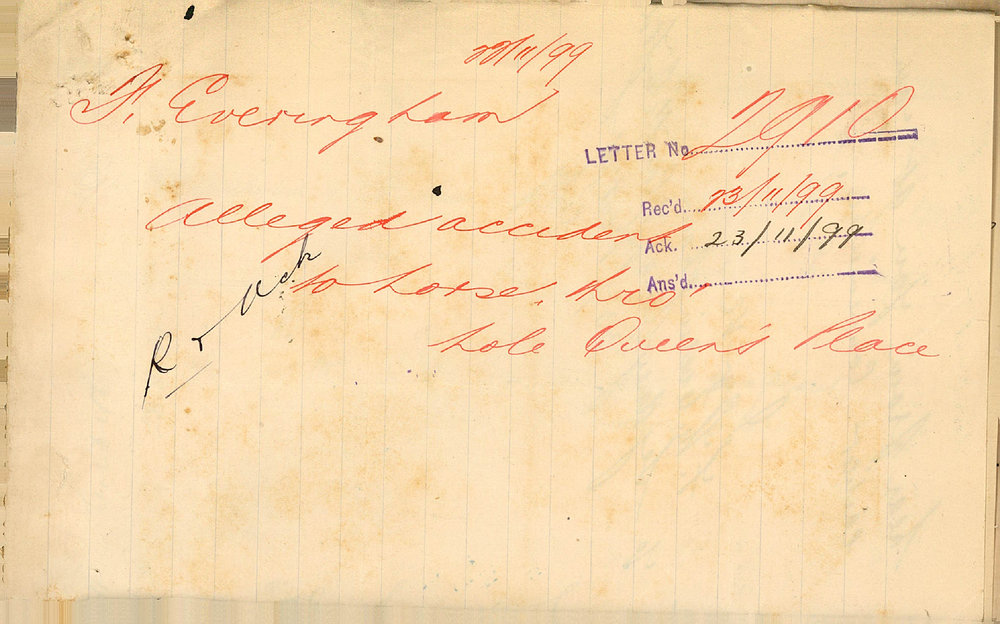 22/11/99
F. Everingham
LETTER No. 2910
Rec'd. 23/11/99
Ack. 23/11/99
Ans'd.
alleged accident
to horse, thro'
hole Queen's Place
R & Ack